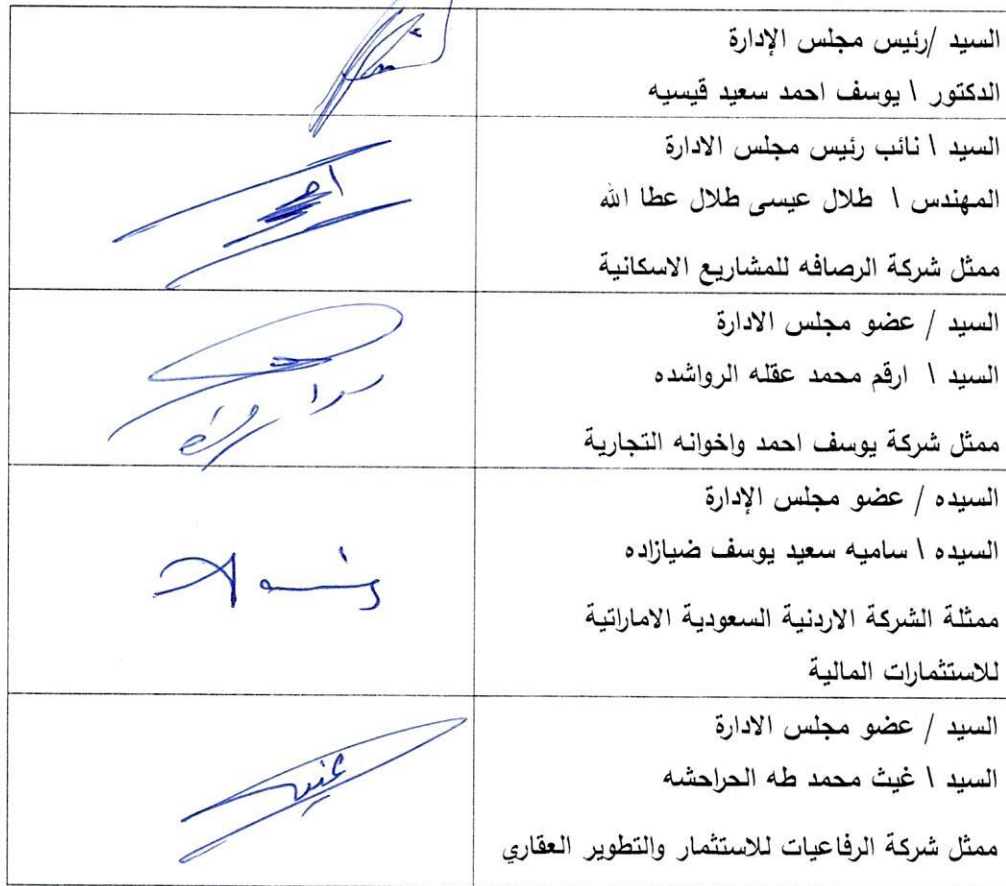 السيد /رئيس مجلس الإدارة
الدكتور \ يوسف احمد سعيد قيسيه
السيد \ نائب رئيس مجلس الادارة
المهندس \ طلال عيسى طلال عطا الله
ممثل شركة الرصافه للمشاريع الاسكانية
السيد / عضو مجلس الادارة
السيد \ ارقم محمد عقله الرواشده
ممثل شركة يوسف احمد واخوانه التجارية
السيده / عضو مجلس الإدارة
السيده \ ساميه سعيد يوسف ضيازاده
ممثلة الشركة الاردنية السعودية الاماراتية
للاستثمارات المالية
السيد / عضو مجلس الادارة
السيد \ غيث محمد طه الحراحشه
ممثل شركة الرفاعيات للاستثمار والتطوير العقاري